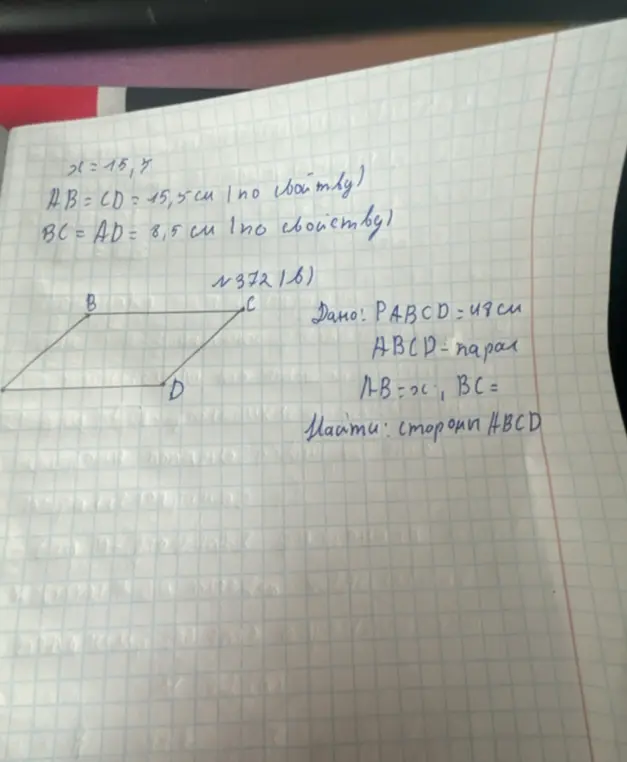 x = 15,5
AB = CD = 15,5 см (по свойтву)
BC = AD = 8,5 см (по свойству)
№372 (в)
B
C
D
Дано: PABCD = 48 см
ABCD - парал
AB = x, BC =
Найти: стороны ABCD